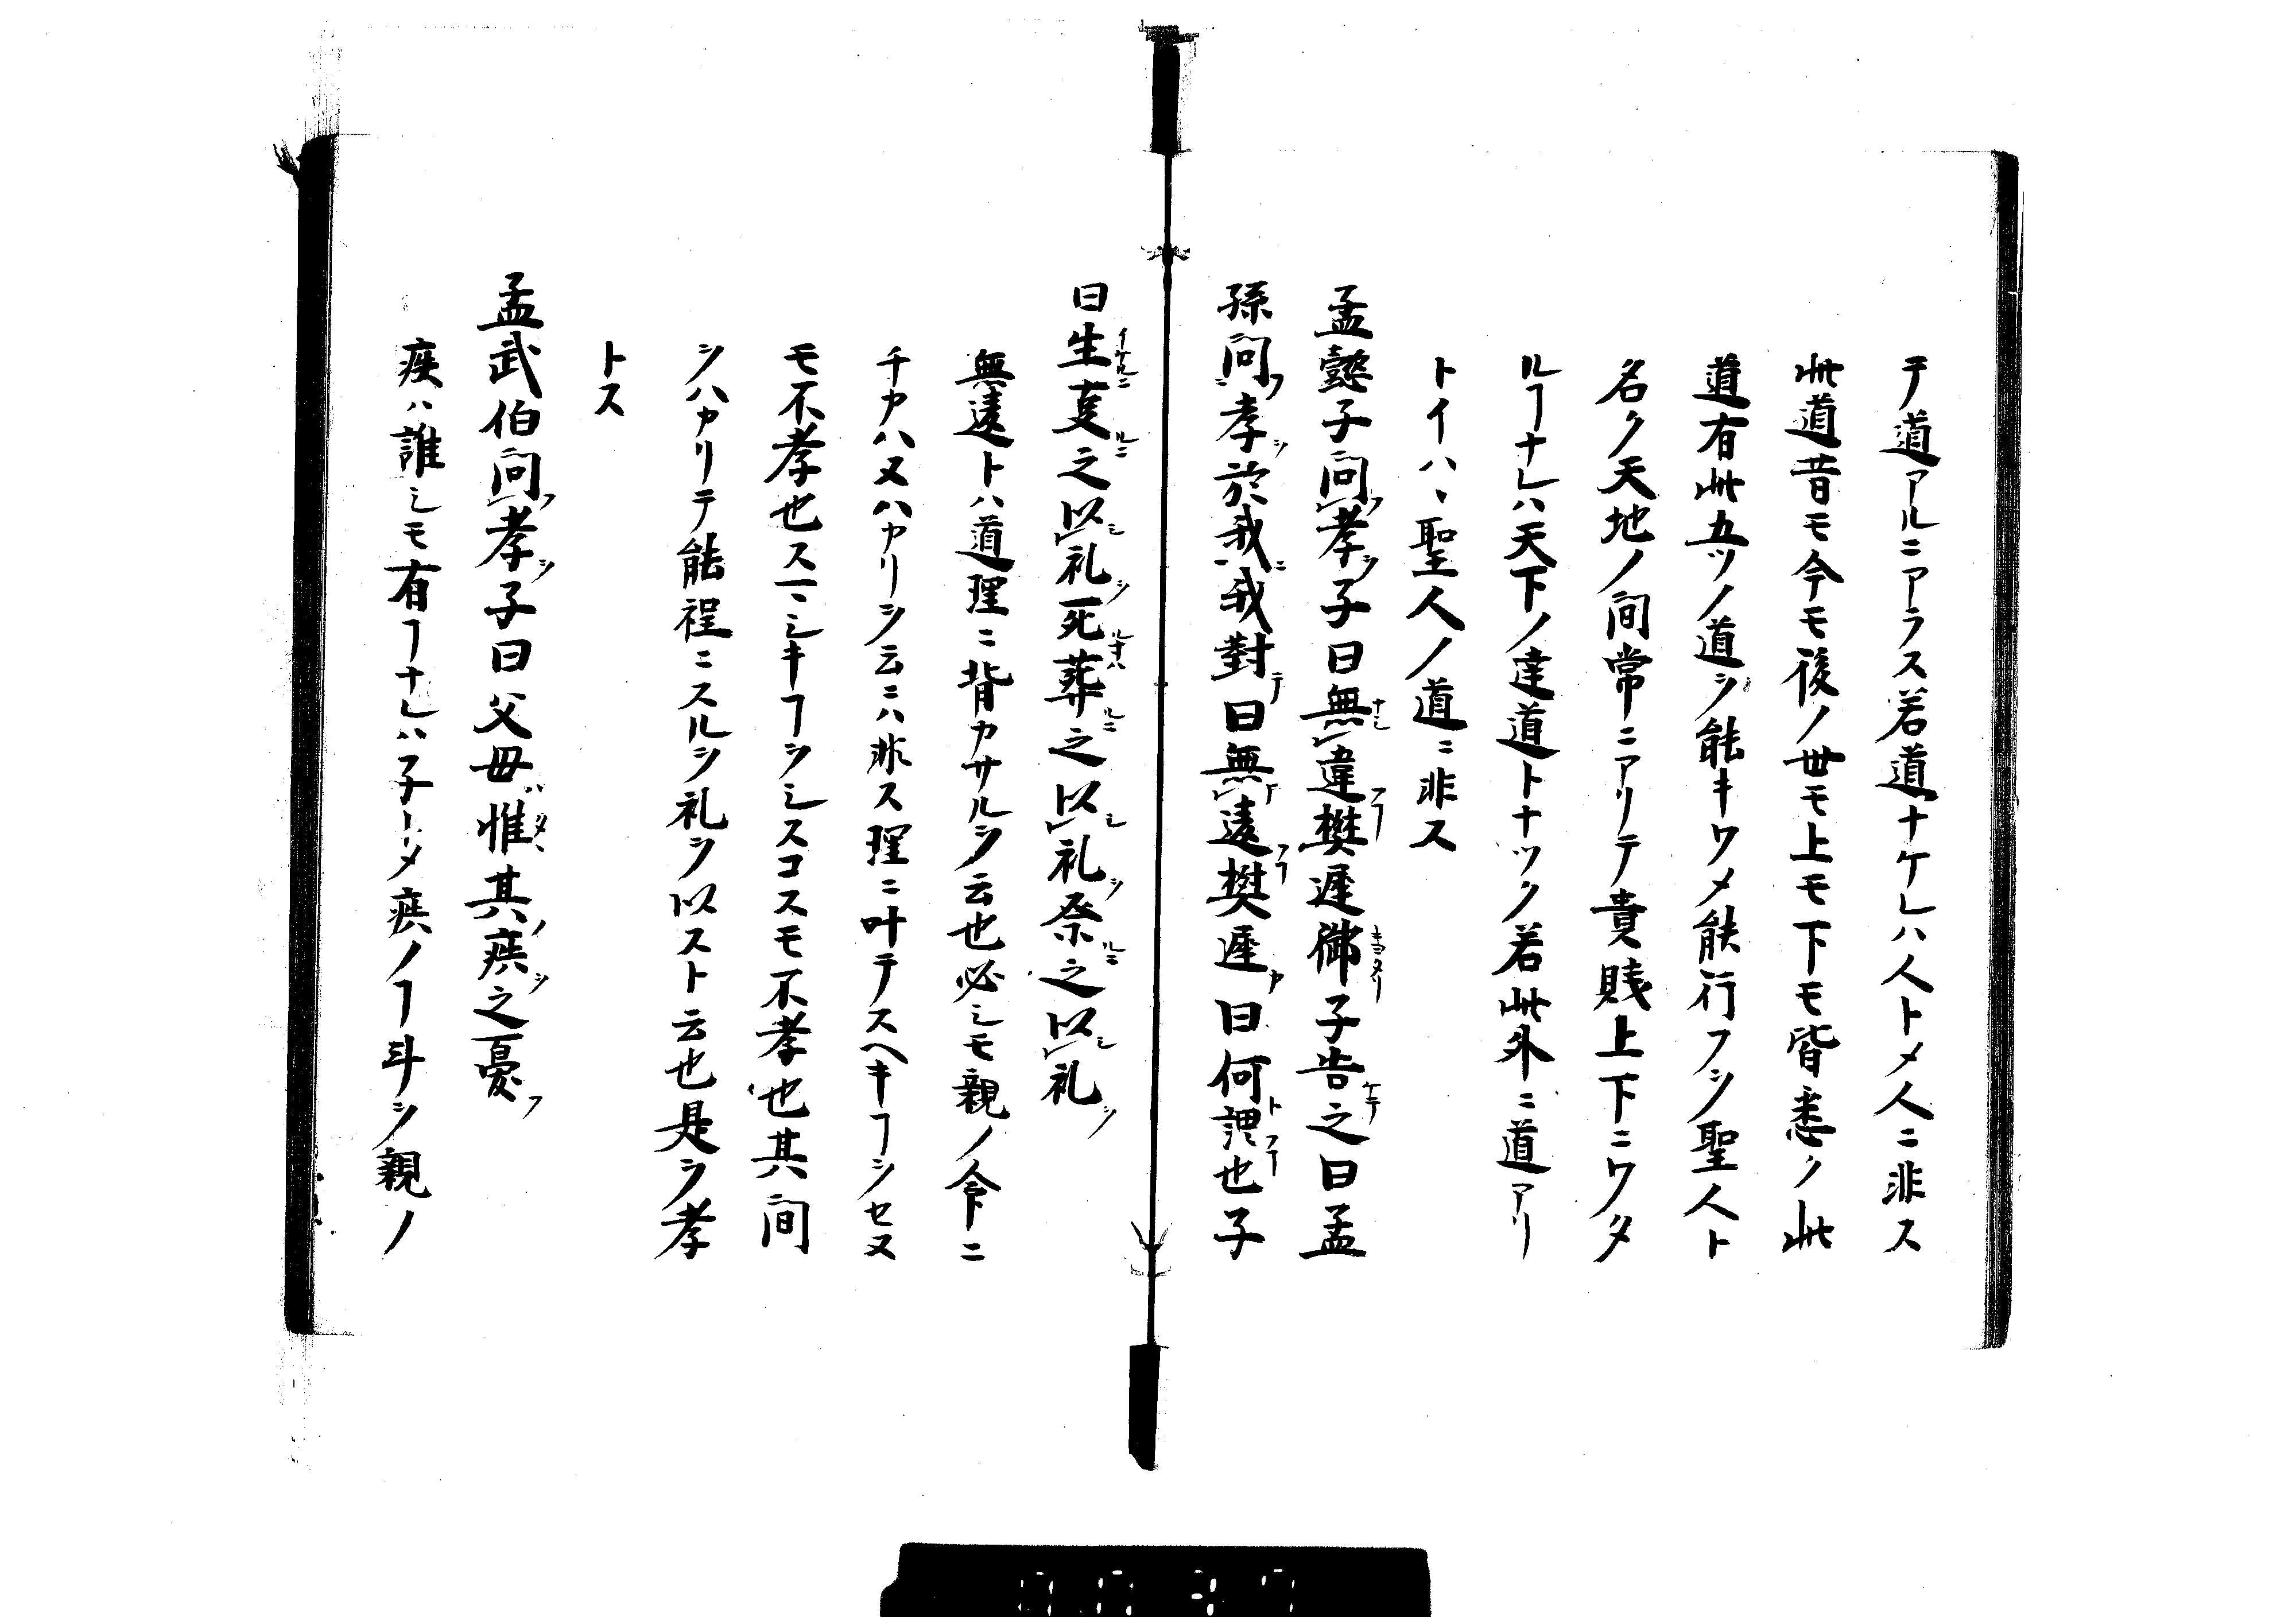 テ道アルニアラス若道ナケレハ人トメ人ニ非ス
此道昔モ今モ後ノ世モ上モ下モ皆悉ク此
道有此五ツノ道ヲ能キワメ能行フヲ聖人ト
名ク天地ノ間常ニアリテ貴賎上下ニワタ
ルヿナレハ天下ノ達道トナツク若此外ニ道アリ
トイハヽ聖人ノ道ニ非ス
孟懿子問孝子曰無違樊遲御子告之曰孟
孫問孝於我我對曰無違樊遲曰何謂也子
曰生事之以礼死葬之以礼祭之以礼
無違トハ道理ニ背カサルヲ云也必シモ親ノ命ニ
チカハヌハカリヲ云ニハ非ス理ニ叶テスヘキヿヲセヌ
モ不孝也スマシキヿヲシスコスモ不孝也其間
ヲハカリテ能程ニスルヲ礼ヲ以スト云也是ヲ孝
トス
孟武伯問孝子曰父母惟其疾之憂
疾ハ誰シモ有ヿナレハ子トメ疾ノヿ斗ヲ親ノ